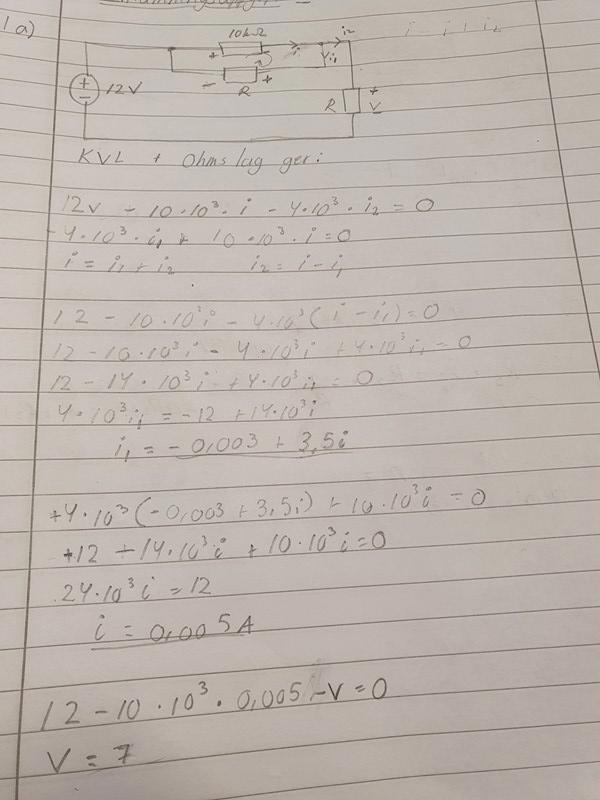 1a)
i = i₁ + i₂
10kΩ
i
i₂
i₁
+
- R +
+ - 12V
R
+ V -
KVL + Ohms lag ger:
12V - 10·10³·i - 4·10³·i₂ = 0
-4·10³·i₁ + 10·10³·i = 0
i = i₁ + i₂ i₂ = i - i₁
12 - 10·10³i - 4·10³(i - i₁) = 0
12 - 10·10³i - 4·10³i + 4·10³i₁ = 0
12 - 14·10³i + 4·10³i₁ = 0
4·10³i₁ = -12 + 14·10³i
i₁ = -0,003 + 3,5i
+4·10³(-0,003 + 3,5i) + 10·10³i = 0
+12 + 14·10³i + 10·10³i = 0
24·10³i = 12
i = 0,005A
12 - 10·10³·0,005 - V = 0
V = 7